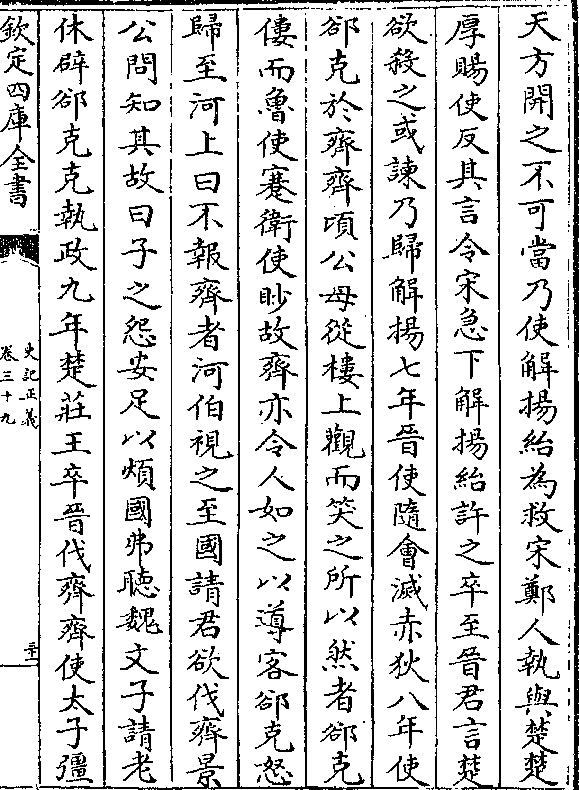 天方開之不可當乃使解揚紿為救宋鄭人執與楚楚
厚賜使反其言令宋急下解揚紿許之卒至晉君言楚
欲殺之或諫乃歸解揚七年晉使隨會滅赤狄八年使
郤克於齊齊頃公母從樓上觀而笑之所以然者郤克
僂而魯使蹇衛使眇故齊亦令人如之以導客郤克怒
歸至河上曰不報齊者河伯視之至國請君欲伐齊景
公問知其故曰子之怨安足以煩國弗聽魏文子請老
休辟郤克克執政九年楚莊王卒晉伐齊齊使太子彊
欽定四庫全書
史記正義
卷三十九
三十二